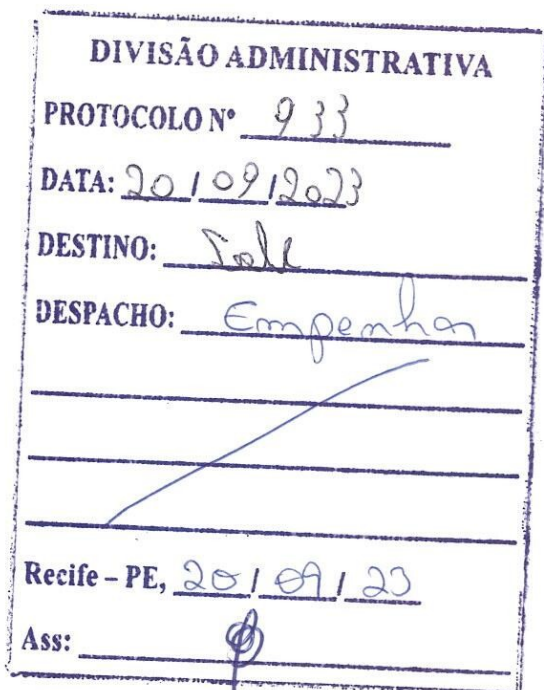 DIVISÃO ADMINISTRATIVA
PROTOCOLO Nº 933
DATA: 20/09/2023
DESTINO:
DESPACHO: Empenhar
Recife – PE, 20/09/23
Ass: